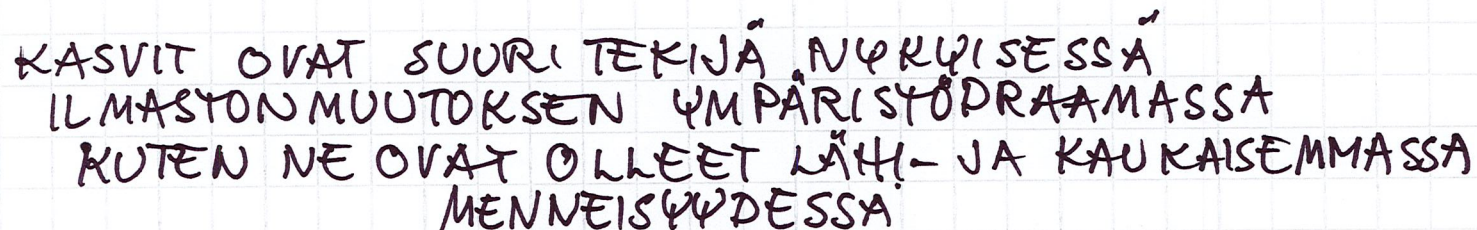 KASVIT OVAT SUURI TEKIJÄ NYKYISESSÄ
ILMASTONMUUTOKSEN YMPÄRISTÖDRAAMASSA
KUTEN NE OVAT OLLEET LÄHI- JA KAUKAISEMMASSA
MENNEISYYDESSÄ